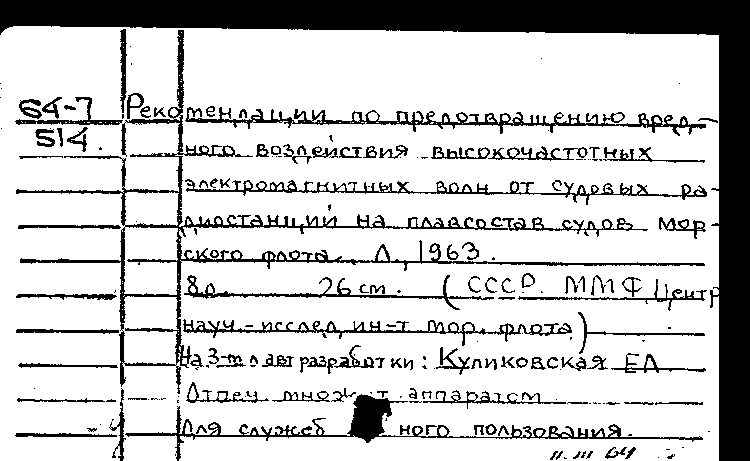 64-7 Рекомендации по предотвращению вред-
514. ного воздействия высокочастотных
электромагнитных волн от судовых ра-
диостанций на плавсостав судов мор-
ского флота. Л., 1963.
8л. 26 см. (СССР. ММФ. Центр
науч.-исслед. ин-т мор. флота)
На 3-м л авт разработки: Куликовская ЕЛ
Отпеч. множит аппаратом
Для служебного пользования.